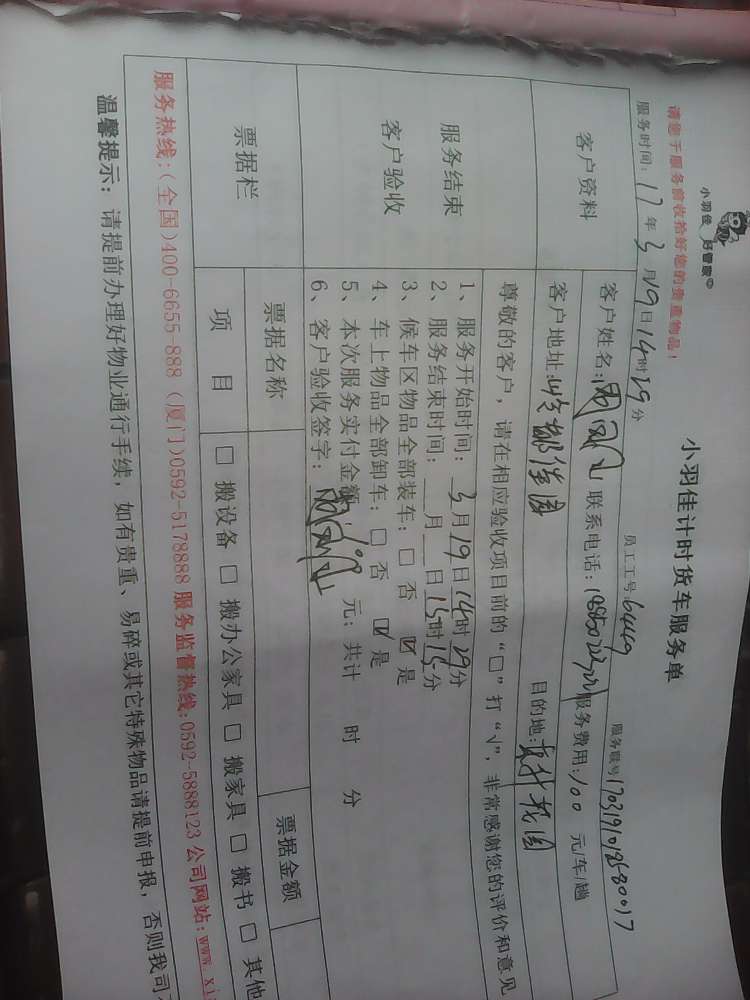 小羽佳 好管家
请您于服务前收拾好您的贵重物品！
小羽佳计时货车服务单
服务时间：17年3月19日14时29分 员工工号6449 服务联号
客户资料
客户姓名： 联系电话： 服务费用：100 元/车/趟
客户地址： 花园 目的地： 花园
尊敬的客户，请在相应验收项目前的“□”打“√”，非常感谢您的评价和意见
服务结束
客户验收
1、服务开始时间：3月19日14时29分
2、服务结束时间：__月__日15时15分
3、候车区物品全部装车：□ 否 ☑ 是
4、车上物品全部卸车：□ 否 ☑ 是
5、本次服务实付金额：100 元；共计 时 分
6、客户验收签字：
票据栏
票据名称 票据金额
项 目 □ 搬设备 □ 搬办公家具 □ 搬家具 □ 搬书 □ 其他
服务热线：(全国)400-6655-888 (厦门)0592-5178888 服务监督热线:0592-5888123 公司网站:www.xi
温馨提示：请提前办理好物业通行手续，如有贵重、易碎或其它特殊物品请提前申报，否则我司